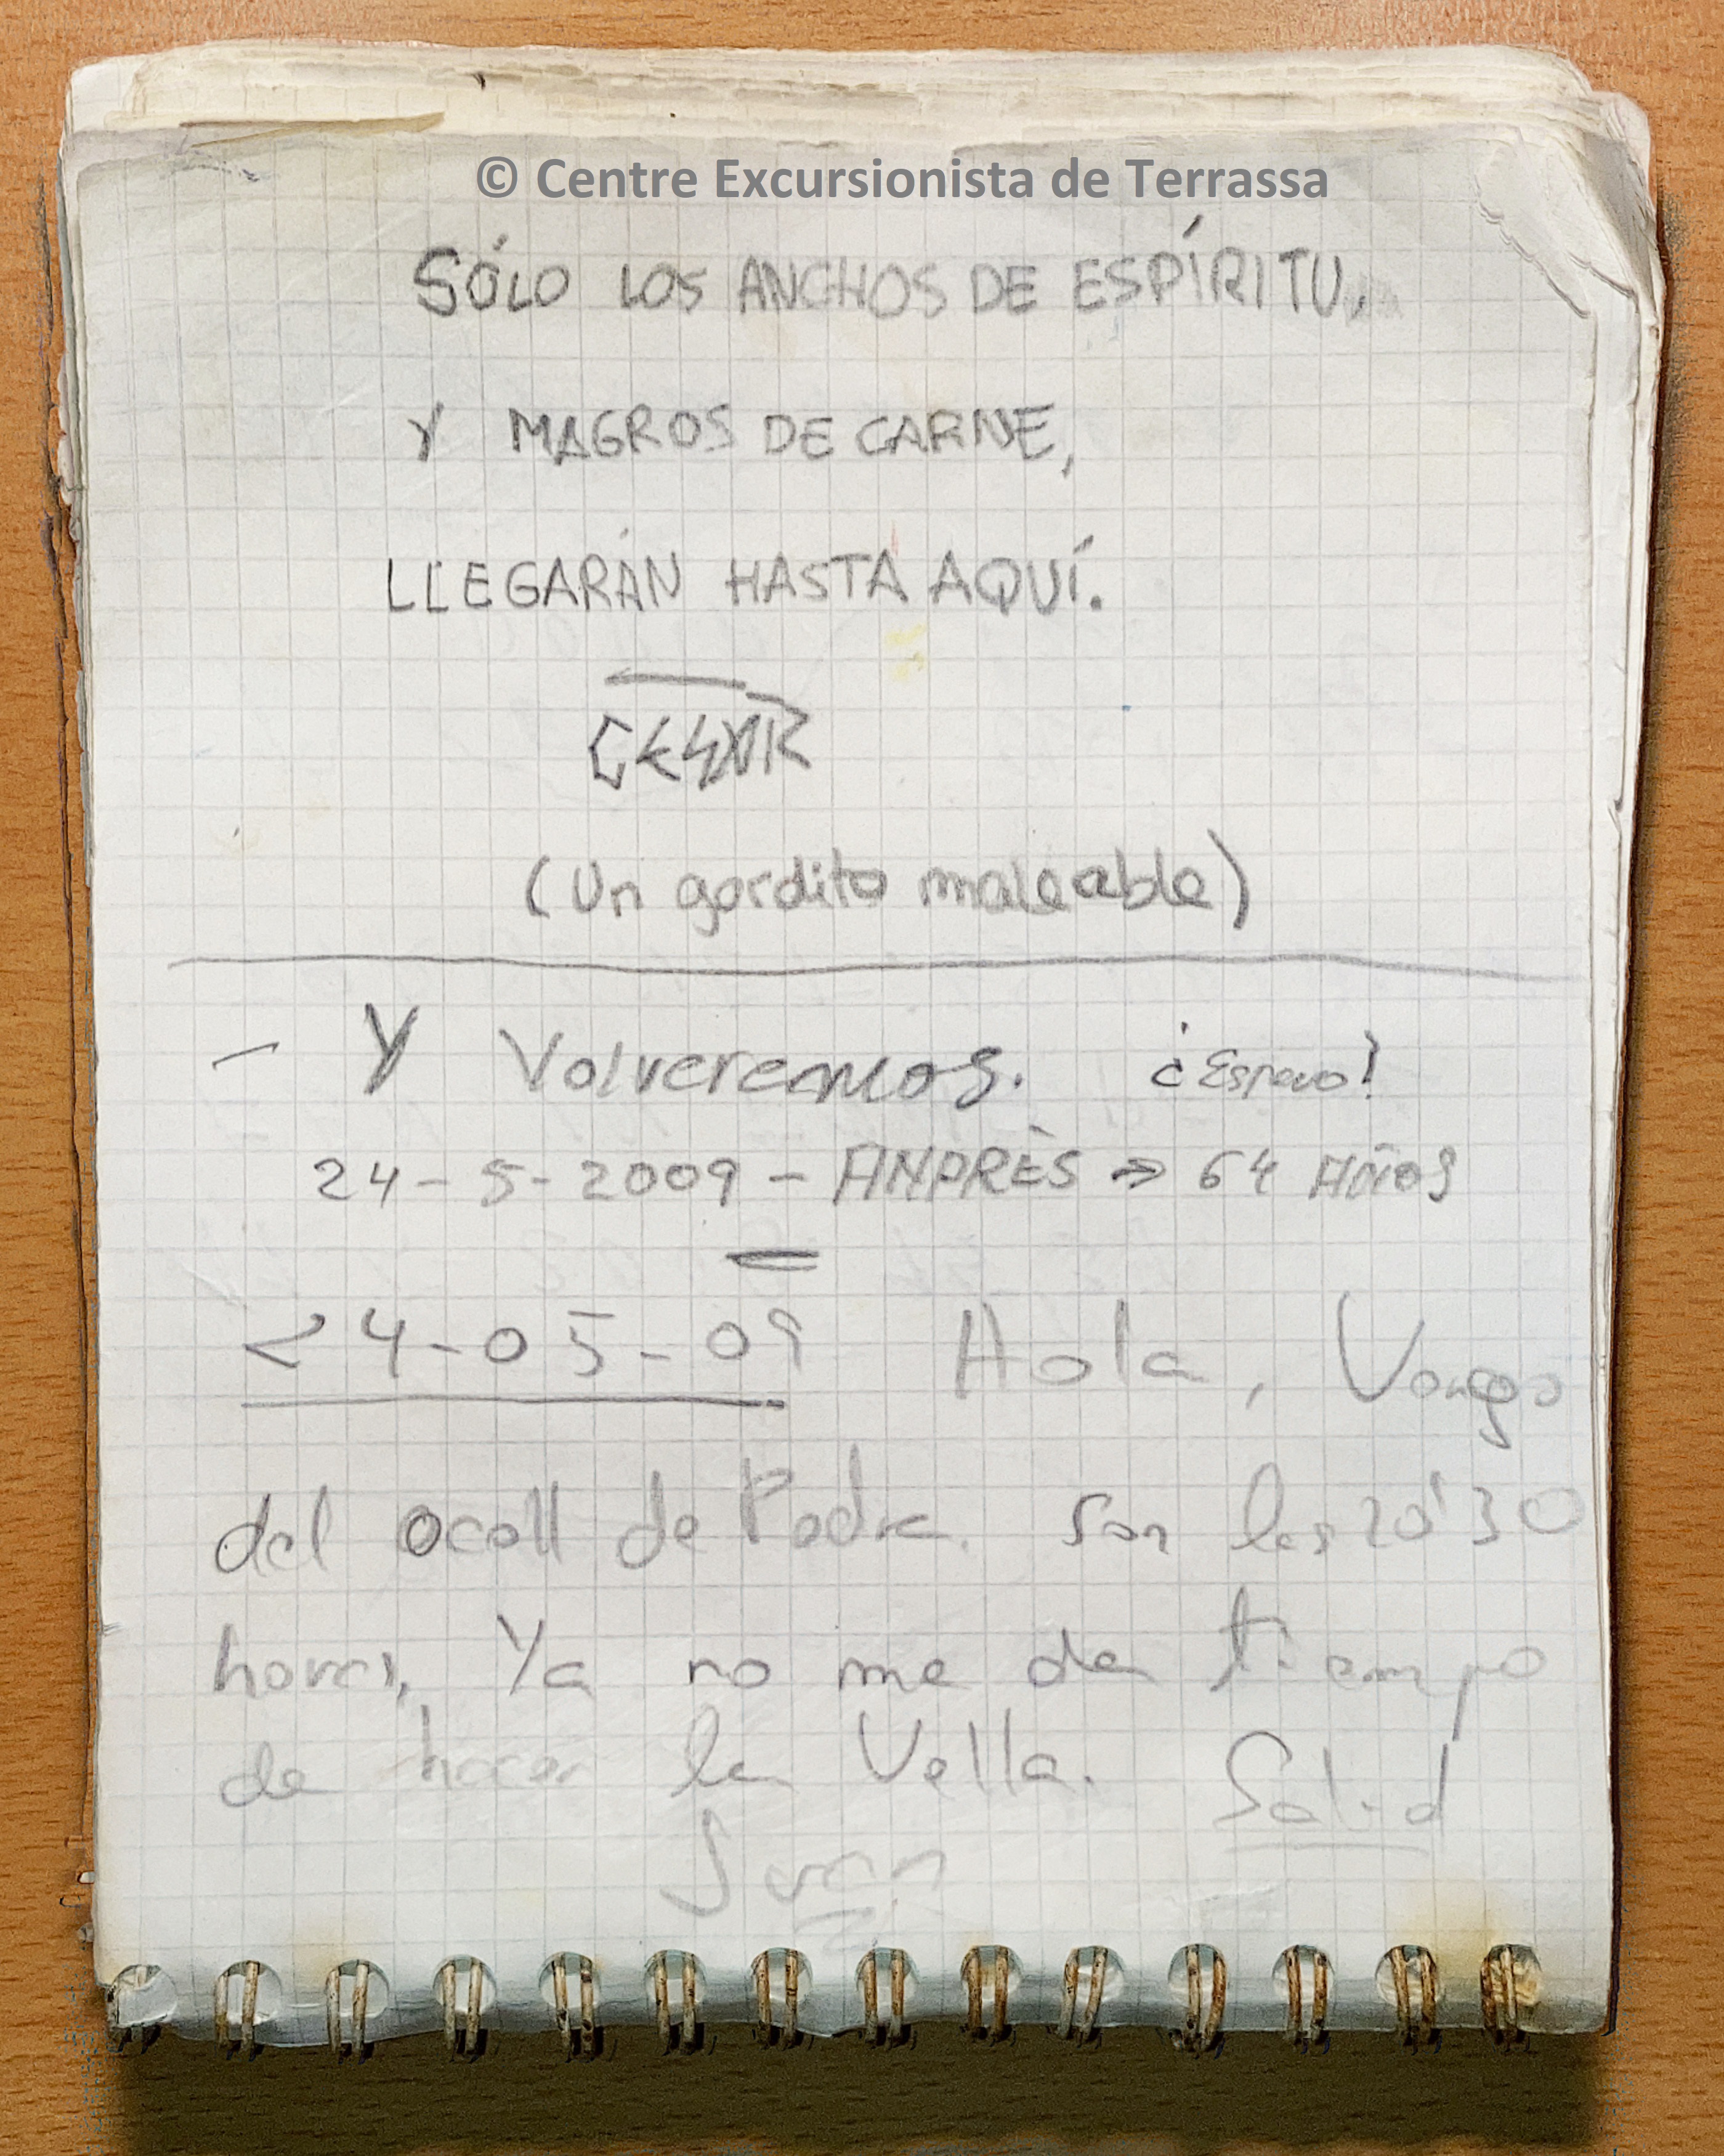 © Centre Excursionista de Terrassa
SÓLO LOS ANCHOS DE ESPÍRITU,
Y MAGROS DE CARNE,
LLEGARÁN HASTA AQUÍ.
CESAR
(Un gordito maleable)
- Y Volveremos. ¿Espero!
24-5-2009 - ANDRÈS => 64 AÑOS
24-05-09 Hola, Vengo
del coll de Son las
horas, Ya no me da tiempo
de hacer la Vella. Salud
Juan